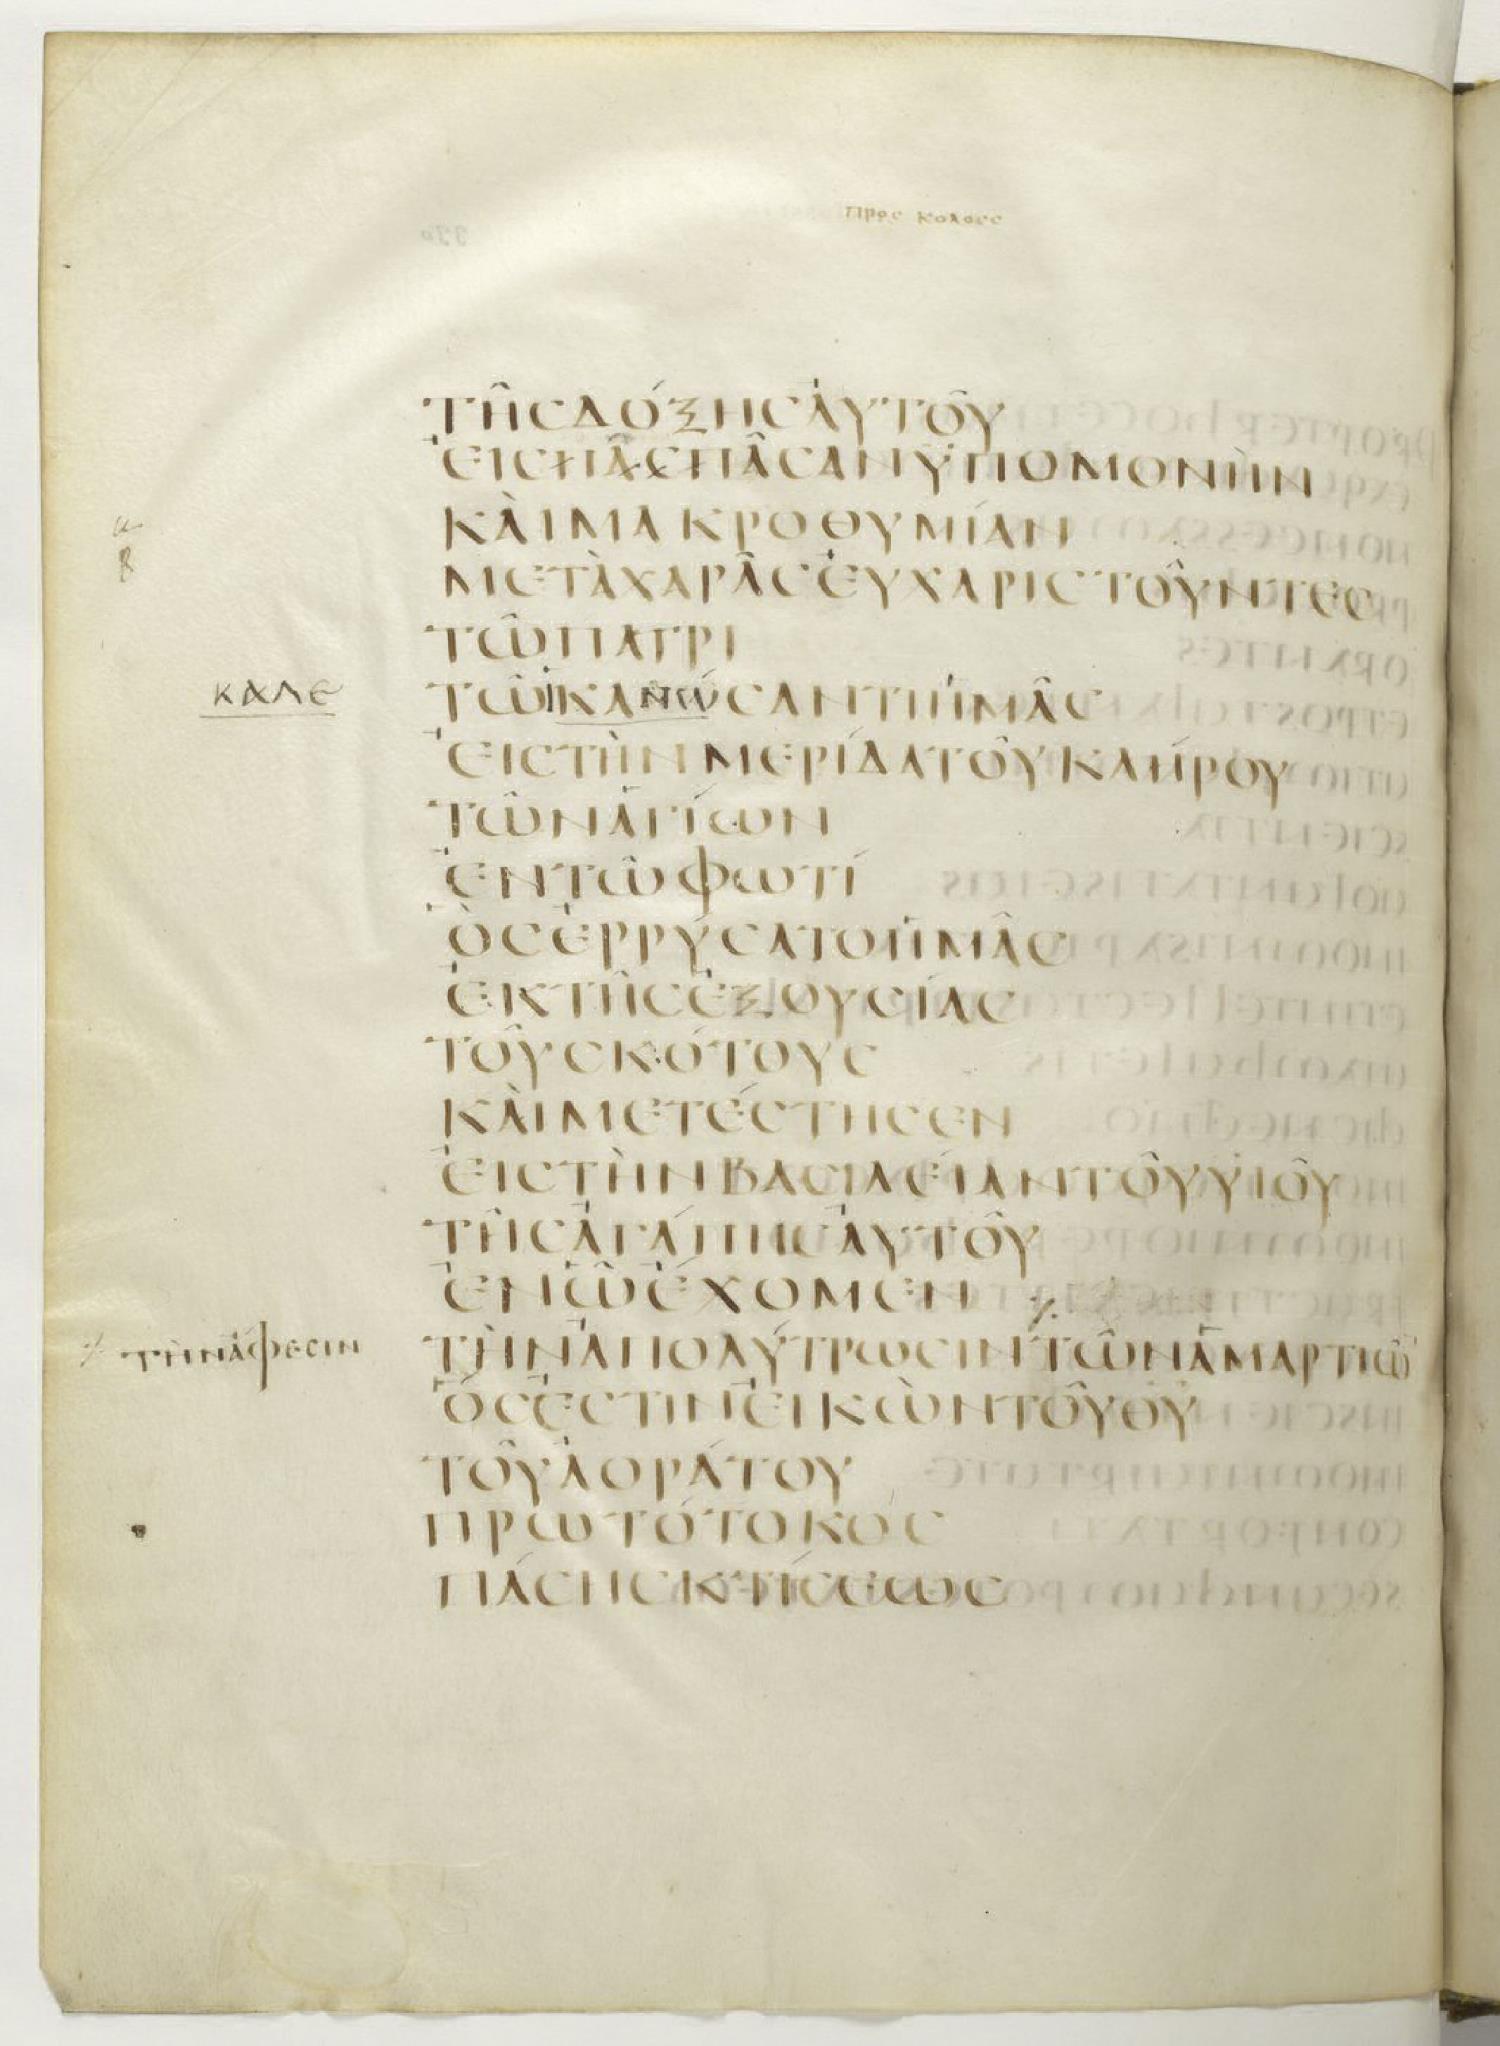 Προς Κολοσς
ΤΗ͂ϹΔΌΞΗϹἈΥΤΟΥ͂
ἘΙϹΠΑ͂ϹΠΑ͂ϹΑΝΥ̓ΠΟΜΟΝῊΝ
ΚᾺΙΜΑΚΡΟΘΥΜΊΑΝ
ΜΕΤᾺΧΑΡΑ͂ϹἘΥΧΑΡΙϹΤΟΥ͂ΝΤΕϹ
ΤΩ͂ΠΑΤΡΙ
ΚΑΛΕ
ΤΩ͂ἹΚΑΝΏϹΑΝΤΙἩΜΑ͂Ϲ
ἘΙϹΤῊΝΜΕΡΊΔΑΤΟΥ͂ΚΛΉΡΟΥ
ΤΩ͂ΝἉΓΊΩΝ
ἘΝΤΩ͂ΦΩΤΊ
ὋϹἘΡΡΎϹΑΤΟἩΜΑ͂Ϲ
ἘΚΤΗ͂ϹἘΞΟΥϹΊΑϹ
ΤΟΥ͂ϹΚΌΤΟΥϹ
ΚᾺΙΜΕΤΈϹΤΗϹΕΝ
ἘΙϹΤῊΝΒΑϹΙΛΕΊΑΝΤΟΥ͂ΥἹΟΥ͂
ΤΗ͂ϹἈΓΆΠΗϹἈΥΤΟΥ͂
ἘΝΩ͂ἜΧΟΜΕΝ ⁒
⁒ ΤῊΝἌΦΕϹΙΝ
ΤῊΝἈΠΟΛΎΤΡΩϹΙΝΤΩ͂ΝἉΜΑΡΤΙΩ̅
ὍϹἘϹΤΙΝἘΙΚῺΝΤΟΥ͂ΘΥ
ΤΟΥ͂ἈΟΡΆΤΟΥ
ΠΡΩΤΌΤΟΚΟϹ
ΠΆϹΗϹΚΤΊϹΕΩϹ